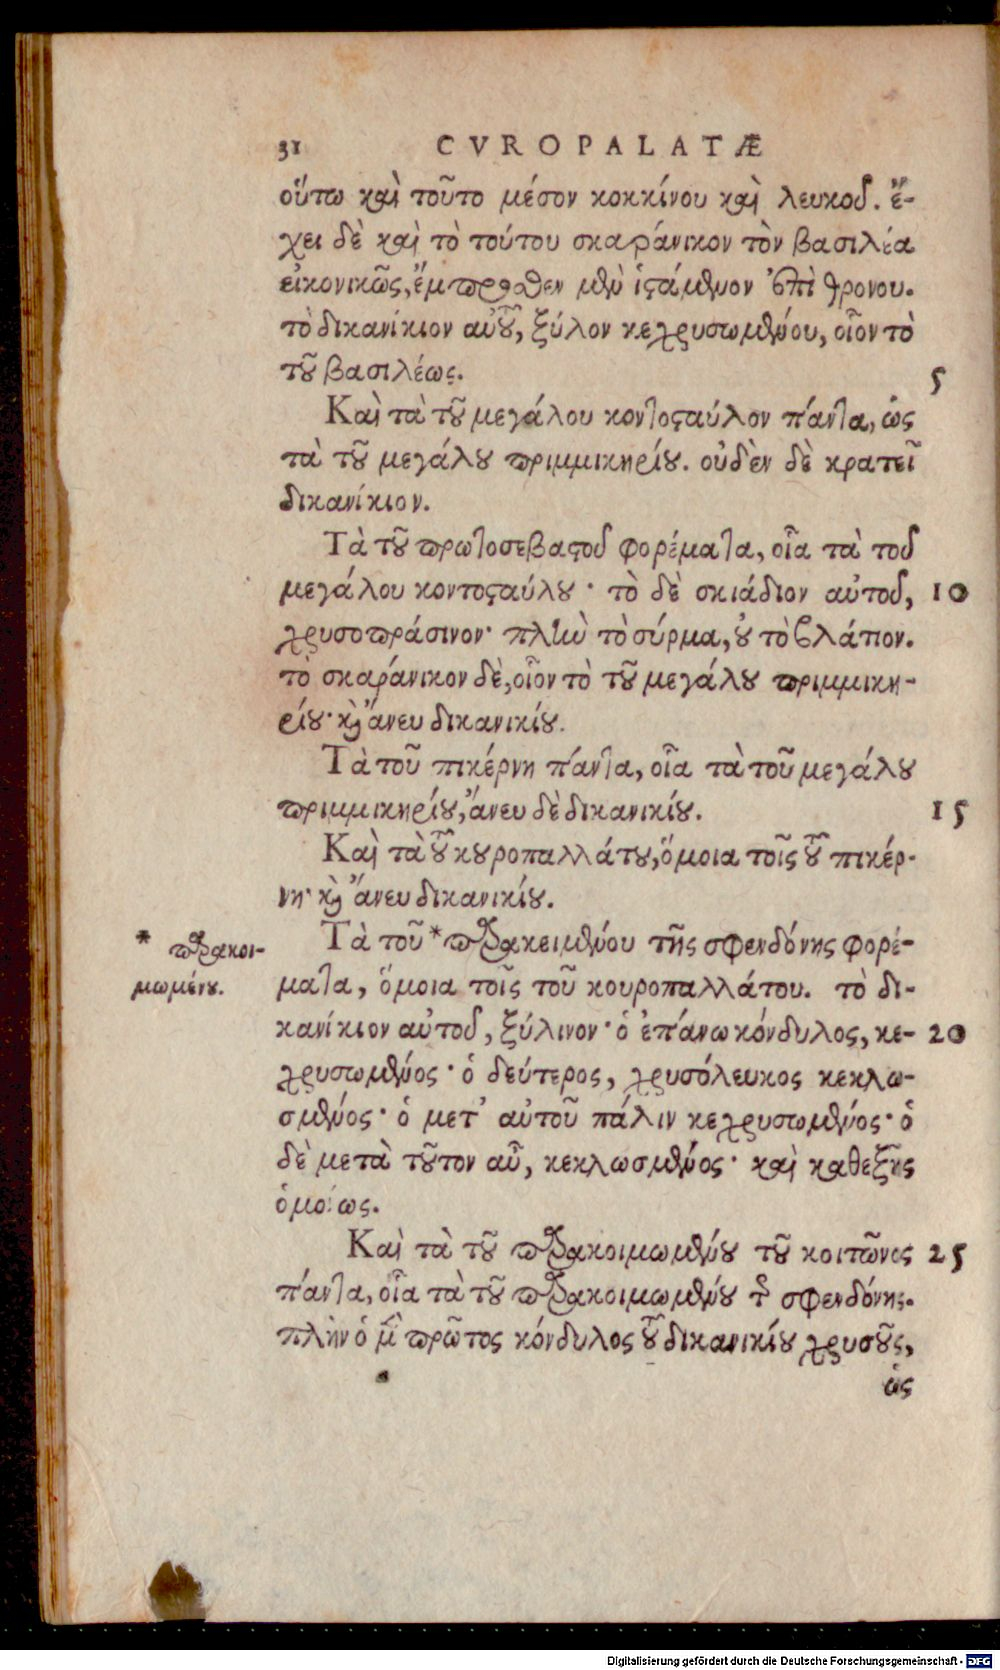 31 CVROPALATÆ
οὕτω καὶ τοῦτο μέσον κοκκίνου καὶ λευκοῦ. ἔ-
χει δὲ καὶ τὸ τούτου σκαράνικον τὸν βασιλέα
εἰκονικῶς, ἔμπροσθεν μὲν ἱστάμενον ἐπὶ θρόνου.
τὸ δικανίκιον αὐτοῦ, ξύλον κεχρυσωμένου, οἷον τὸ
τοῦ βασιλέως.
5
Καὶ τὰ τοῦ μεγάλου κοντοσταύλον πάντα, ὡς
τὰ τοῦ μεγάλου πριμμικηρίου. οὐδὲν δὲ κρατεῖ
δικανίκιον.
Τὰ τοῦ πρωτοσεβαστοῦ φορέματα, οἷα τὰ τοῦ
μεγάλου κοντοσταύλου· τὸ δὲ σκιάδιον αὐτοῦ, 10
χρυσοπράσινον· πλὴν τὸ σύρμα, οὐ τὸ βλάπον.
τὸ σκαράνικον δὲ, οἷον τὸ τοῦ μεγάλου πριμμικη-
ρίου· καὶ ἄνευ δικανικίου.
Τὰ τοῦ πικέρνη πάντα, οἷα τὰ τοῦ μεγάλου
πριμμικηρίου, ἄνευ δὲ δικανικίου. 15
Καὶ τὰ τοῦ κουροπαλλάτου, ὅμοια τοῖς τοῦ πικέρ-
νη· καὶ ἄνευ δικανικίου.
Τὰ τοῦ * παρακειμένου τῆς σφενδόνης φορέ-
* παρακοι-
μωμένου.
ματα, ὅμοια τοῖς τοῦ κουροπαλλάτου. τὸ δι-
κανίκιον αὐτοῦ, ξύλινον· ὁ ἐπάνω κόνδυλος, κε- 20
χρυσωμένος· ὁ δεύτερος, χρυσόλευκος κεκλω-
σμένος· ὁ μετ’ αὐτοῦ πάλιν κεχρυσωμένος· ὁ
δὲ μετὰ τοῦτον αὖ, κεκλωσμένος· καὶ καθεξῆς
ὁμοίως.
Καὶ τὰ τοῦ παρακοιμωμένου τοῦ κοιτῶνος 25
πάντα, οἷα τὰ τοῦ παρακοιμωμένου τῆς σφενδόνης.
πλὴν ὁ μὲν πρῶτος κόνδυλος τοῦ δικανικίου χρυσοῦς,
ὡς
Digitalisierung gefördert durch die Deutsche Forschungsgemeinschaft - DFG